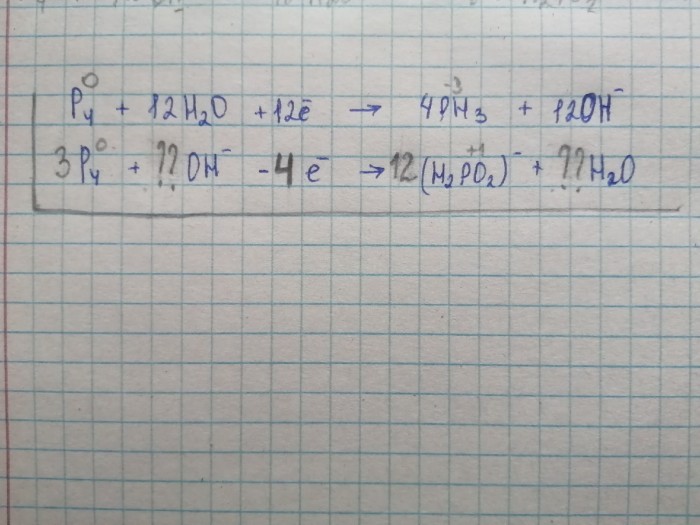 P₄⁰ + 12H₂O + 12e⁻ → 4P⁻³H₃ + 12OH⁻
3P₄⁰ + ?? OH⁻ - 4e⁻ → 12(H₂P⁺¹O₂)⁻ + ?? H₂O